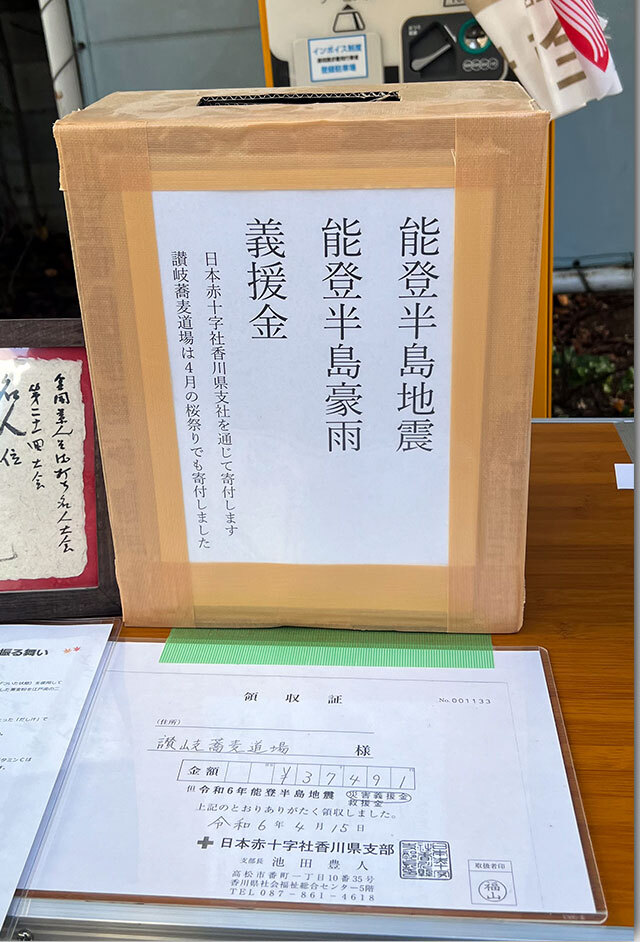 インボイス制度
能登半島地震
能登半島豪雨
義援金
日本赤十字社香川県支社を通じて寄付します
讃岐蕎麦道場は4月の桜祭りでも寄付しました
全国素人そば打ち名人大会
第二十一回大会
名人位
振る舞い
領収証
No.001133
(住所)
讃岐蕎麦道場 様
金額 ¥37491
但令和6年能登半島地震 災害義援金
救援金
上記のとおりありがたく領収しました。
令和6年4月15日
日本赤十字社香川県支部
支部長 池田豊人
高松市番町一丁目10番35号
香川県社会福祉総合センター5階
TEL 087-861-4618
取扱者印
福山